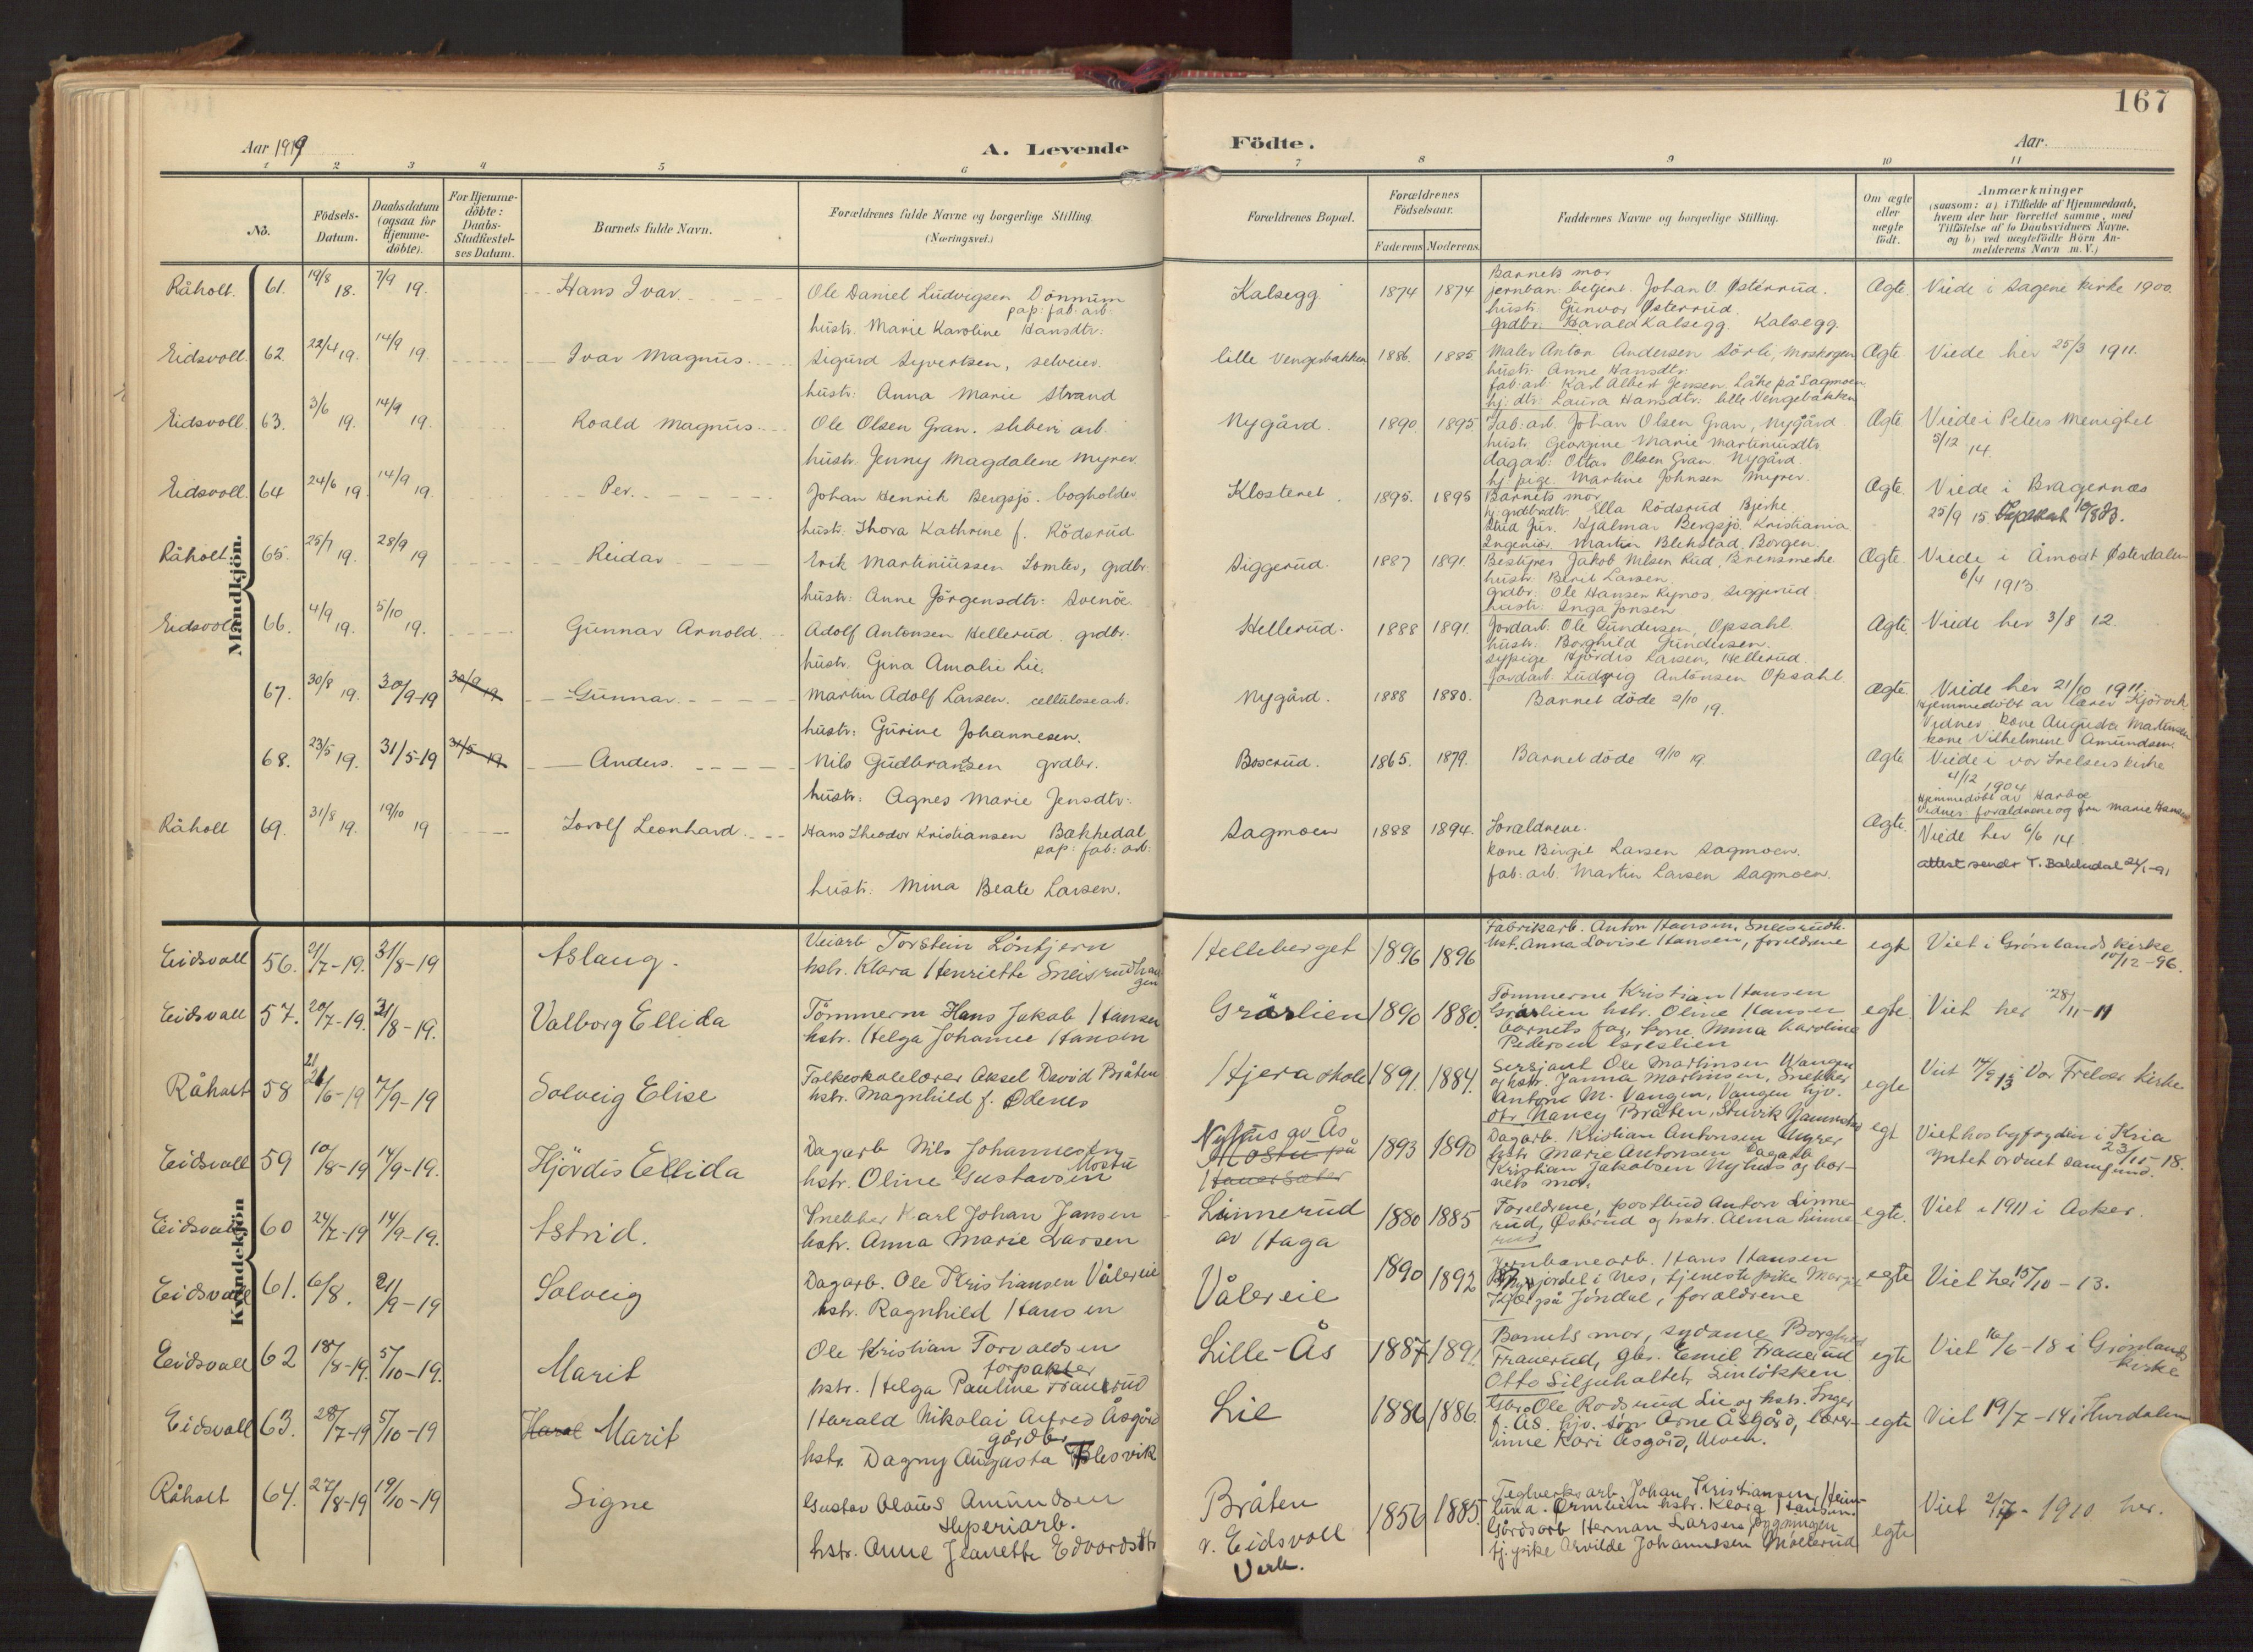 167
Aar 1919
A. Levende
Födte.
Aar.
1 2 3 4 5 6 7 8 9 10 11
No.
Födsels-
Datum.
Daabsdatum
(ogsaa for
Hjemme-
döbte).
For Hjemme-
döbte:
Daabs-
Stadfæstel-
ses Datum.
Barnets fulde Navn.
Forældrenes fulde Navne og borgerlige Stilling.
(Næringsvei.)
Forældrenes Bopæl.
Forældrenes
Födselsaar.
Faderens Moderens.
Faddernes Navne og borgerlige Stilling.
Om ægte
eller
uægte
født.
Anmærkninger
(saasom: a) i Tilfælde af Hjemmedaab,
hvem der har forrettet samme, med
Tilföielse af to Daabsvidners Navne.
og b) ved uægtefödte Börn An-
melderens Navn m. V.)
Mandkjön.
Råholt. 61. 19/8 18. 7/9 19. Hans Ivar
Ole Daniel Ludvigsen Dönnum
pap: fab: arb:
hustr. Marie Karoline Hansdtr:
Kalsegg 1874 1874
Barnets mor
jernban: betjent. Johan V. Østerrud.
hustr. Gunvor Østerrud.
grdbr. Harald Kalsegg. Kalsegg.
Ægte. Viede i Sagene kirke 1900.
Eidsvoll 62. 22/4 19. 14/9 19. Ivar Magnus.
Sigurd Syvertsen, selveier.
hustr: Anna Marie Strand
lille Vengerbakken 1886. 1885
Maler Anton Andersen Sörli, Moskogen
hustr: Anne Hansdtr.
fab: arb: Karl Albert Jensen Låke på Sagmoen.
hj: dtr: Laura Hansdtr: lille Vengebakken
Ægte. Viede her 25/3 1911.
Eidsvoll 63. 3/6 19. 14/9 19. Roald Magnus.
Ole Olsen Gran. sliberi arb.
hustr. Jenny Magdalene Myrer.
Nygård. 1890 1895
Fab: arb. Johan Olsen Gran, Nygård
hustr. Georgine Marie Martiniusdtr
dagarb: Ottar Olsen Gran Nygård.
hj. pige. Martine Johnsen Myrer.
Ægte Viede i Peters Menighet
5/12 14.
Eidsvoll. 64 24/6 19. 14/9 19. Per.
Johan Henrik Bergsjö. bogholder
hustr. Thora Kathrine f. Rödsrud
Klosteret. 1895. 1895
Barnets mor
hj: grdbrdtr. Ella Rödsrud Bjerke
Stud jur. Hjalmar Bergsjö Kristiania
Ingeniör Martin Blekstad, Borgen.
Ægte. Viede i Bragernæs
25/9 15.
Råholt. 65. 25/7 19. 28/9 19 Reidar
Erik Martiniussen Lomter, grdbr.
hustr: Anne Jörgensdtr: Svenöe.
Siggerud. 1887 1891.
Bestyrer Jakob Nilsen Rud, Brensmerke
hustr: Berit Larsen.
grdbr: Ole Hansen Kynos Siggerud.
hustr: Inga Jonsen
Ægte. Viede i Åmodt Østerdalen
6/4 1913.
Eidsvoll 66. 4/9 19. 5/10 19. Gunnar Arnold.
Adolf Antonsen Hellerud. grdbr.
hustr. Gina Amalie Lie.
Hellerud. 1888 1891.
Jordarb: Ole Gundersen, Opsahl
hustr: Borghild Gundersen.
sypige Hjördis Larsen, Hellerud.
Jordarb: Ludvig Antonsen Opsahl
Ægte. Viede her 3/8 12.
67. 30/8 19. 30/9-19 30/9 19 Gunnar.
Martin Adolf Larsen. cellulosearb.
hustr: Gurine Johannesen.
Nygård. 1888 1880. Barnet döde 2/10 19.
Ægte. Viede her 21/10 1911.
Hjemmedöbt av lærer Kjörvik
Vidner. kone Augusta Martinsen
kone Vilhelmine Amundsen.
68. 23/5 19. 31/5-19 31/5 19 Anders.
Nils Gudbransen grdbr.
hustr: Agnes Marie Jensdtr:
Boserud. 1865. 1879. Barnet döde 9/10 19.
Ægte Viede i vor Frelsers kirke
4/12 1904
Hjemmedöbt av Harboe
Vidner: forældrene og fru Marie Hansen
Råholt 69. 31/8 19. 19/10 19 Torolf Leonhard.
Hans Theodor Kristiansen Bakkedal
pap: fab: arb:
hustr: Mina Beate Larsen.
Sagmoen 1888 1894.
Forældrene.
kone Birgit Larsen Sagmoen.
fab: arb. Martin Larsen Sagmoen.
Ægte. Viede her 6/6 14.
attest sendt T. Bakkedal 24/1-91
Kvindekjön
Eidsvoll 56. 21/7-19. 31/8-19 Aslaug.
Veiarb Torstein Löntjern
hstr. Klara Henriette Sneisrudhaugen
Helleberget 1896 1896
Fabrikarb. Anton Hansen, Sneisrudh.
hst. Anna Lovise Hansen, foreldrene
egte Viet i Grönlands kirke
10/12-96.
Eidsvoll 57. 20/7-19. 31/8-19. Valborg Ellida
Tömmerm Hans Jakob Hansen
hstr. Helga Johanne Hansen
Gråslien 1890 1880.
Tömmerm Kristian Hansen
Gråslien hstr. Oline Hansen
barnets far, kone Mina Karoline
Pedersen Gråslien
egte. Viet her 28/11-11
Råholt 58 21/6-19 7/9-19 Solveig Elise
Folkeskolelærer Aksel David Bråten
hstr. Magnhild f. Ødenes
Hjera skole 1891. 1884.
Sersjant Ole Martinsen Wangen
og hstr. Janna Martinsen, Snekker
Antone M. Vangen, Vangen hjv.
dtr. Nancy Bråten,
egte Viet 17/9 13 i Vor Frelser kirke
Eidsvoll 59 10/8-19 14/9-19. Hjördis Ellida
Dagarb Nils Johannesen
Mostu
hstr. Oline Gustavsen
Nyhus av Ås
Mostu på
1893 1890
Dagarb. Kristian Antonsen Myrer
hstr Marie Antonsen Dagarb
Kristian Jakobsen Nyhus og bar-
nets mor.
egt Viet hos byfogden i Kria
23/11-18.
Intet ordnet samfund.
Eidsvoll 60 24/7-19 14/9-19. Astrid.
Snekker Karl Johan Jansen
hstr. Anna Marie Larsen
Linnerud
av Haga
1880 1885
Foreldrene, postbud Anton Linne-
rud, Østerud og hstr. Alma Linne-
rud
egte. Viet i 1911 i Asker.
Eidsvoll 61. 6/8. 21/9-19 Solveig
Dagarb. Ole Kristiansen Vålereie
hstr. Ragnhild Hansen
Vålereie 1890 1892
Jernbanearb. Hans Hansen
i Nes, tjenestepike
på Jöndal, forældrene
egte Viet her 15/10-13.
Eidsvoll 62 18/8-19. 5/10-19. Marit
Ole Kristian Torvaldsen
forpakter
hstr. Helga Pauline Frauerud
Lille-Ås 1887 1891
Barnets mor, sydame Borghild
Frauerud, gbr. Emil Frauerud
Otto Siljuholtet Sinlökken
egte Viet 16/6-18 i Grönlands
kirke
Eidsvoll 63. 28/7-19 5/10-19 Marit
Harald Nikolai Alfred Åsgård
gårdbr
hstr. Dagny Augusta Blesvik
Lie 1886 1886.
Gbr. Ole Rodsrud Lie og hstr. Inger
f. Ås. hjv. sön Arne Åsgård, lærer-
inne Kari Åsgård, Ulven.
egte Viet 19/7-14 i Hurdalen
Råholt 64. 27/8-19 19/10-19 Signe
Gustav Olaus Amundsen
Sliperiarb.
hstr. Anne Jeanette Edvardsdtr
Bråten
v. Eidsvoll
Verk.
1856 1885.
Teglverksarb. Johan Kristiansen,
hstr. Klara Hansen.
Gårdsarb Herman Larsen Bygningen
tj. pike Arvilde Johannesen Mollerud
egte Viet 2/7-1910 her.